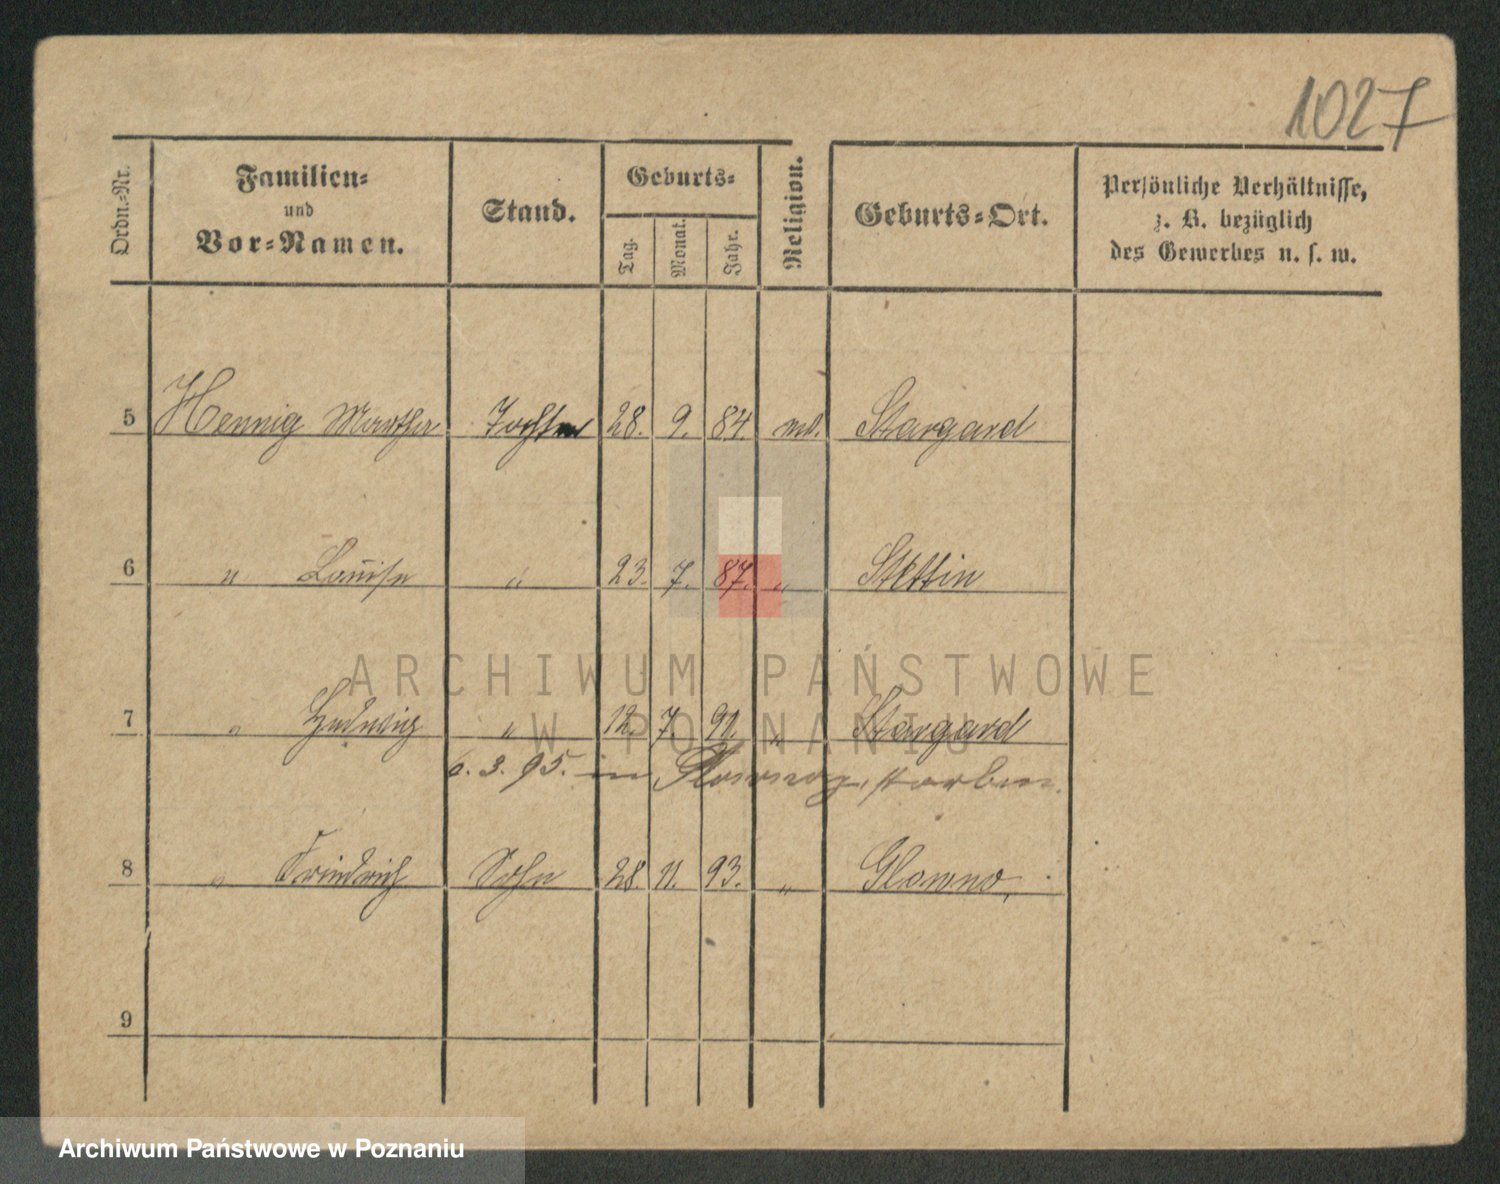 1027
Ordn.-Nr. Familien- und Vor-Namen. Stand. Geburts- Tag. Monat. Jahr. Religion. Geburts-Ort. Persönliche Verhältnisse, z. B. bezüglich des Gewerbes u. s. w.
5 Hennig Martha Tochter 28. 9. 84. Stargard
6 " Louise " 23. 7. 87. " Stettin
7 " Hedwig " 12. 7. 91. " Stargard
6. 3. 95. in Glowno gestorben.
8 " Friedrich Sohn 28. 11. 93. " Glowno,
9
ARCHIWUM PAŃSTWOWE
W POZNANIU
Archiwum Państwowe w Poznaniu